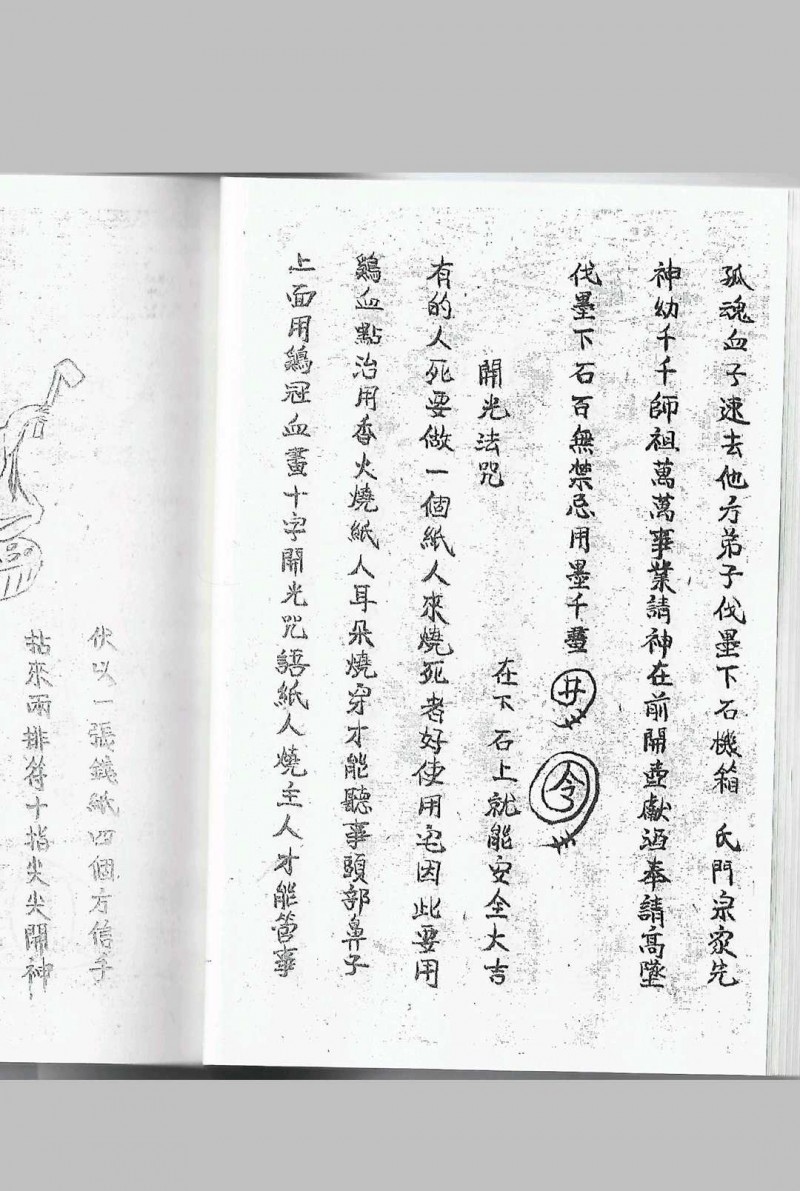 孤魂血子速去他方弟子伐墨下石機箱 氏門宗家先
神幼千千師祖萬萬事業請神在前開壺獻酒奉請高墜
伐墨下石百無禁忌用墨千 井 令
在下石上就能安全大吉
開光法咒
有的人死要做一個紙人來燒死者好使用宅因此要用
鷄血點治用香火燒紙人耳朵燒穿才能聽事頭部鼻子
上面用鷄冠血畫十字開光咒語紙人燒主人才能管事
伏以一張錢紙四個方信手
拈來兩排符十指尖尖開神